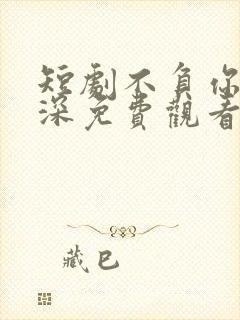 短劇不負你
深免費觀看
藏巴